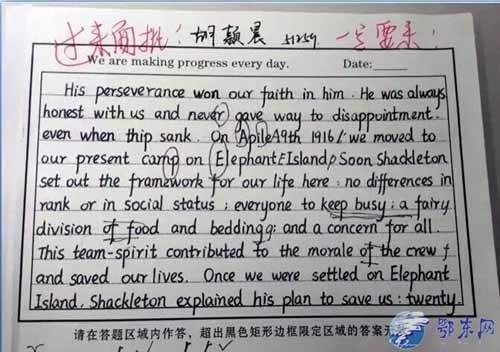 过来面批！胡颖晨 51259 一定要来！
We are making progress every day. Date:
His perseverance won our faith in him. He was always
honest with us and never gave way to disappointment.
even when thip sank. On Apile 19th 1916, we moved to
our present camp on Elephant Island, Soon Shackleton
set out the framework for our life here: no differences in
rank or in social status; everyone to keep busy; a fairy
division of food and bedding; and a concern for all.
This team-spirit contributed to the morale of the crew
and saved our lives. Once we were settled on Elephant
Island, Shackleton explained his plan to save us: twenty
请在答题区域内作答，超出黑色矩形边框限定区域的答案无
鄂东网